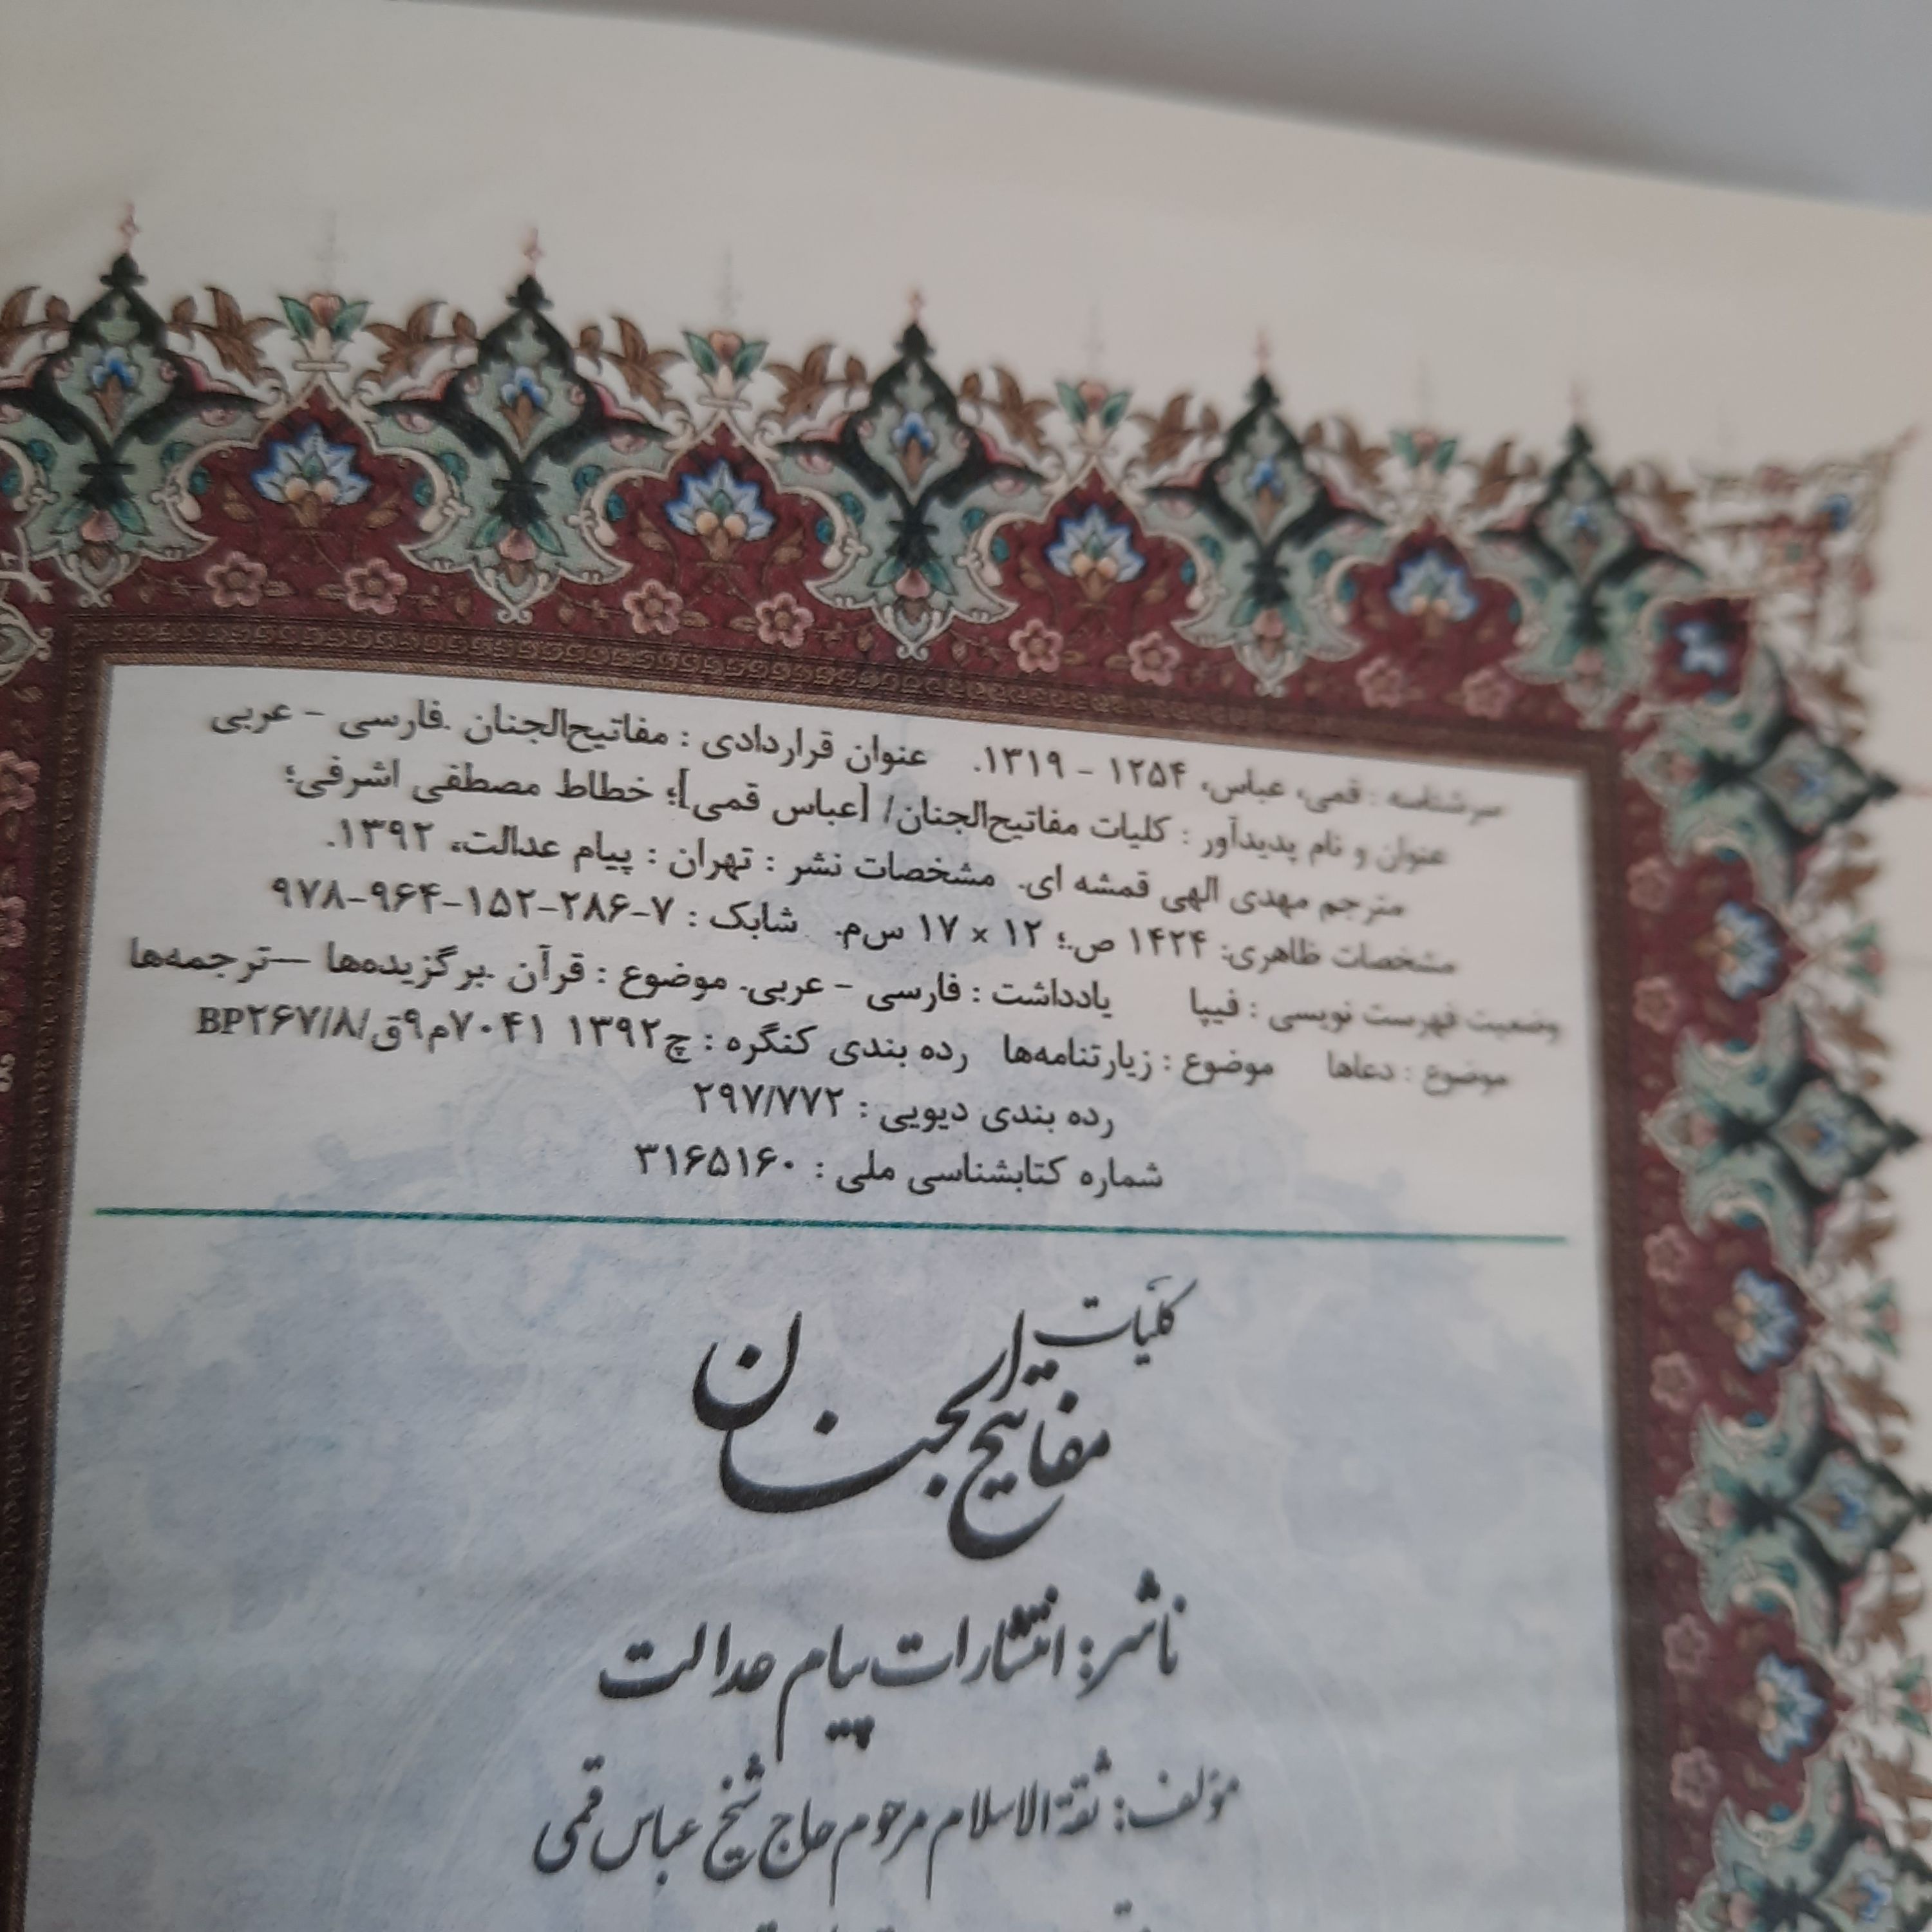 سرشناسه : قمی، عباس، ۱۲۵۴ - ۱۳۱۹. عنوان قراردادی : مفاتیح‌الجنان .فارسی - عربی
عنوان و نام پدیدآور : کلیات مفاتیح‌الجنان/ [عباس قمی]؛ خطاط مصطفی اشرفی؛
مترجم مهدی الهی قمشه ای. مشخصات نشر : تهران : پیام عدالت، ۱۳۹۲.
مشخصات ظاهری: ۱۴۲۴ ص.؛ ۱۲ × ۱۷ س‌م. شابک : ۷-۲۸۶-۱۵۲-۹۶۴-۹۷۸
وضعیت فهرست نویسی : فیپا یادداشت : فارسی - عربی. موضوع : قرآن .برگزیده‌ها —ترجمه‌ها
موضوع : دعاها موضوع : زیارتنامه‌ها رده بندی کنگره : چ۱۳۹۲ ۷۰۴۱م۹ق/BP۲۶۷/۸
رده بندی دیویی : ۲۹۷/۷۷۲
شماره کتابشناسی ملی : ۳۱۶۵۱۶۰
کلیات
مفاتیح الجنان
ناشر: انتشارات پیام عدالت
مؤلف: ثقة الاسلام مرحوم حاج شیخ عباس قمی